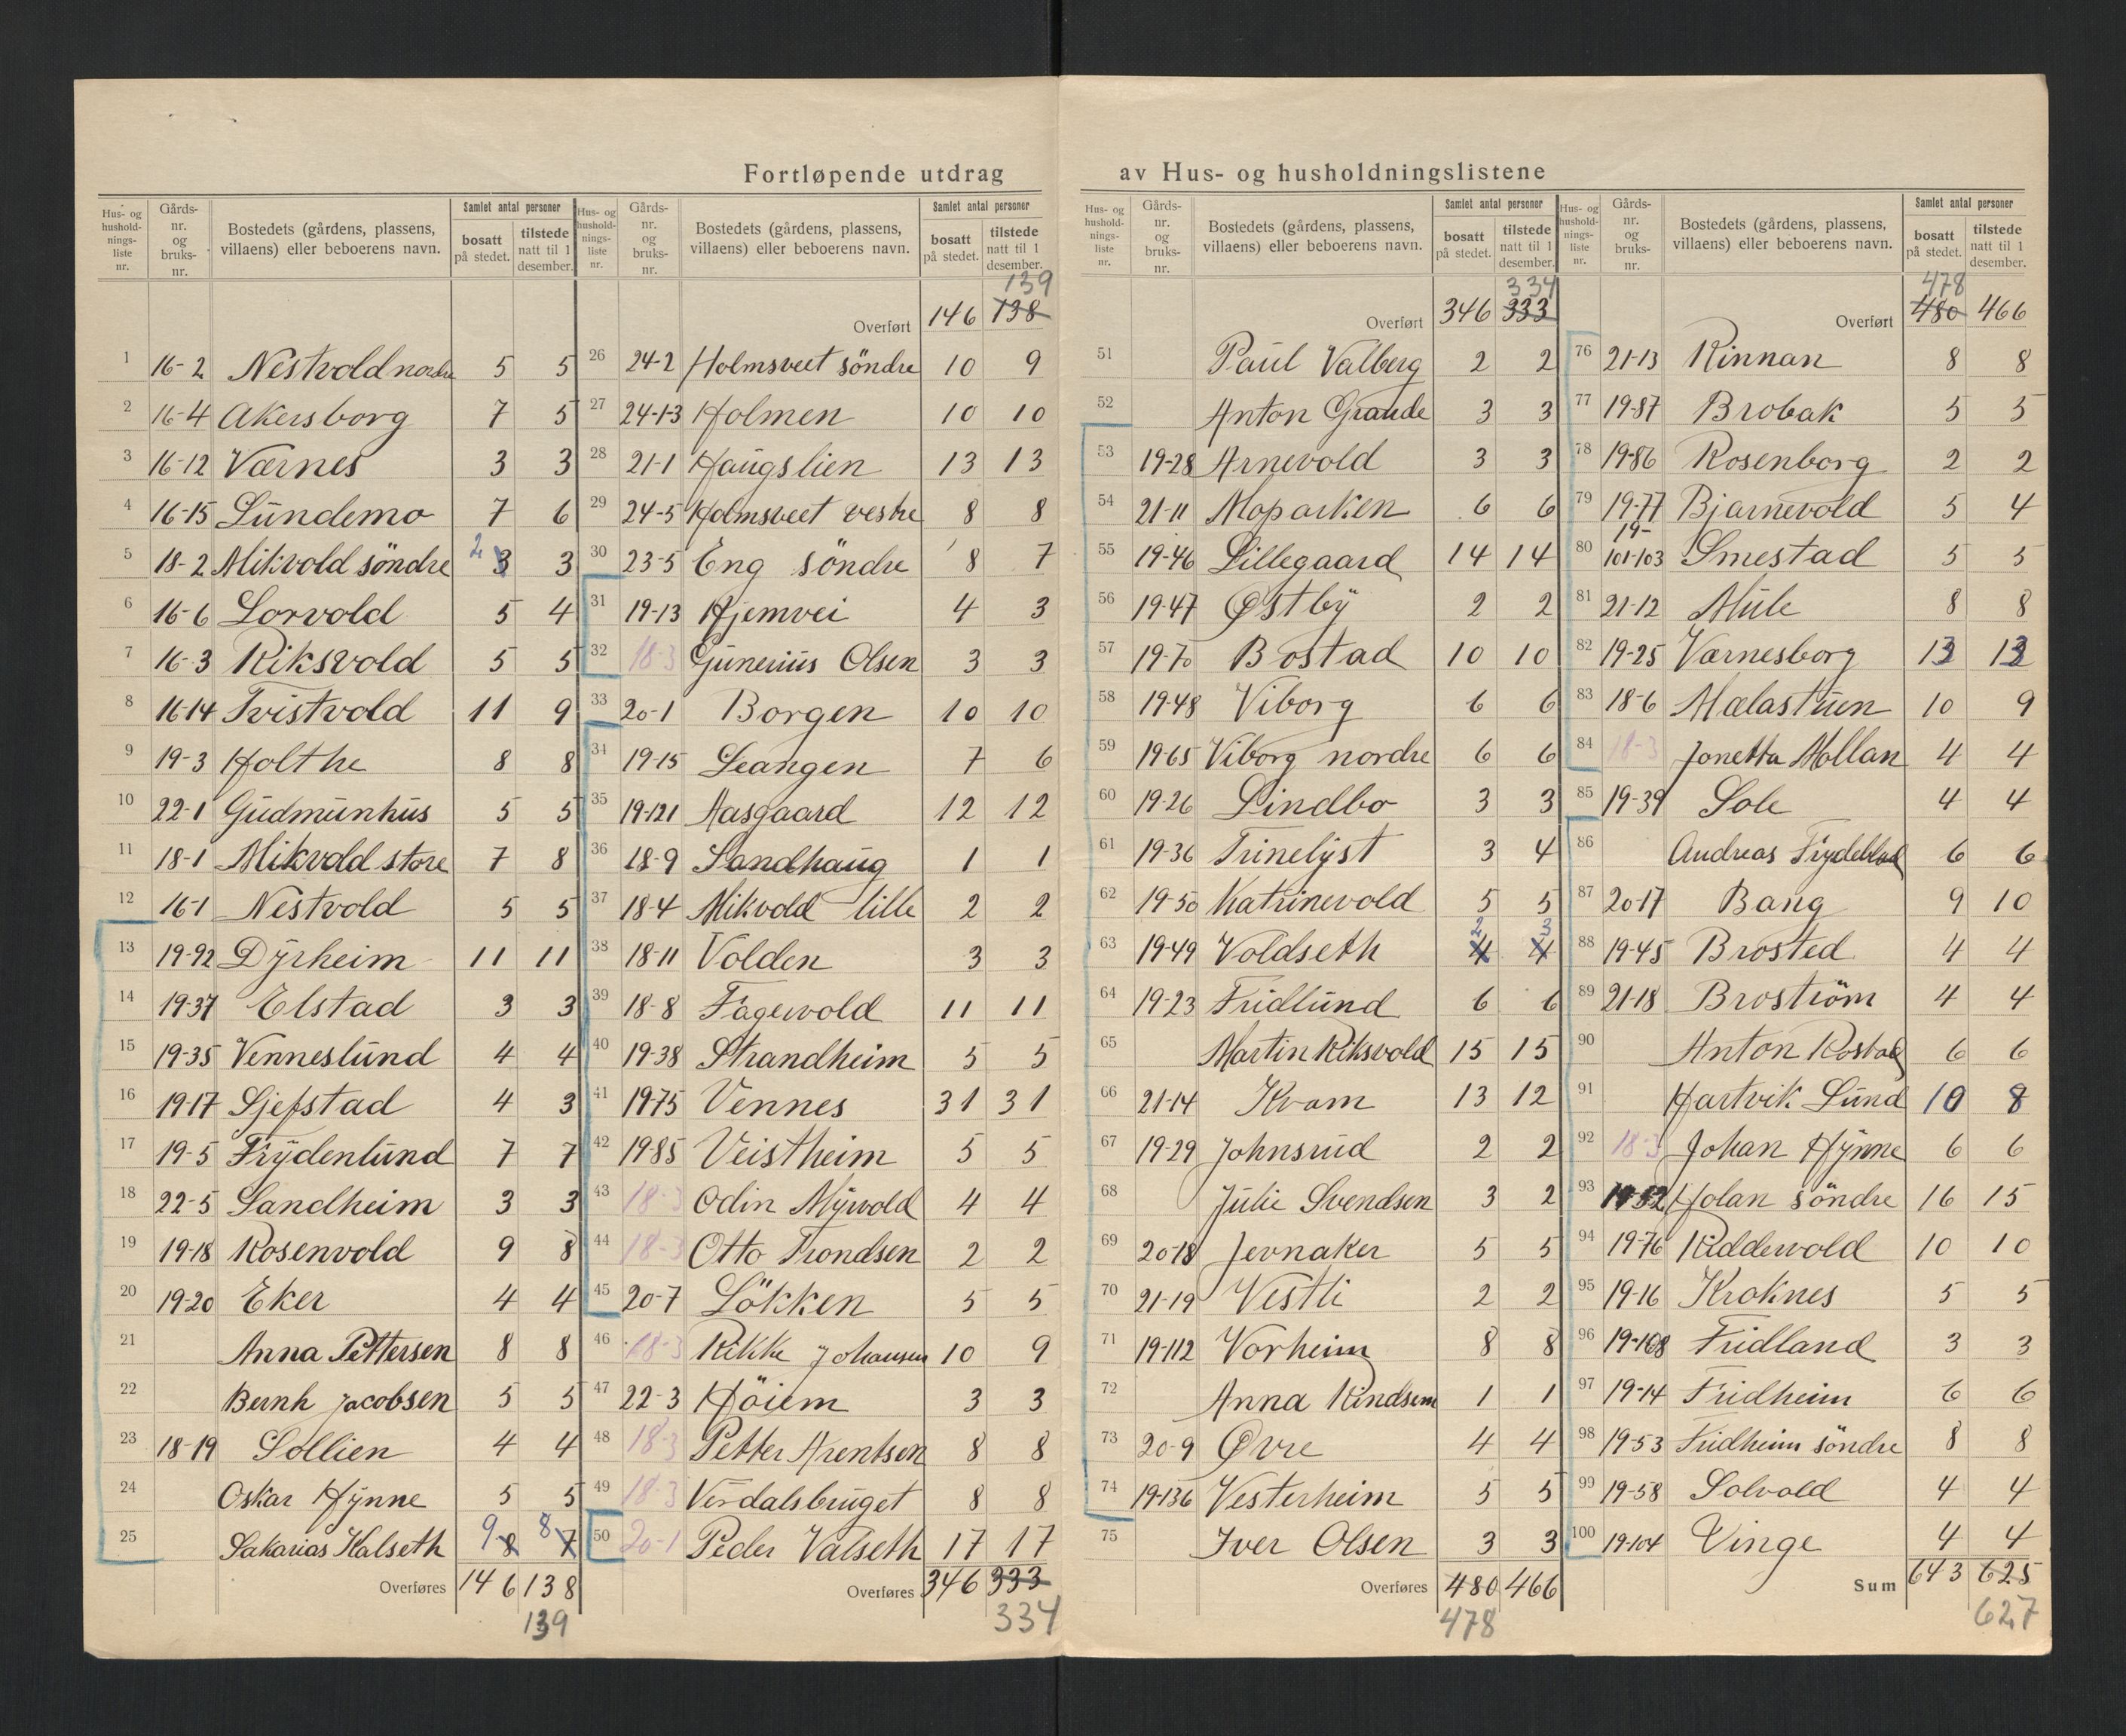 Fortløpende utdrag av Hus- og husholdningslistene
Hus- og hushold-nings-liste nr. Gårds-nr. og bruks-nr. Bostedets (gårdens, plassens, villaens) eller beboerens navn. Samlet antal personer bosatt på stedet. tilstede natt til 1 desember.
1 16-2 Nestvold nordre 5 5
2 16-4 Akersborg 7 5
3 16-12 Værnes 3 3
4 16-15 Lundemo 7 6
5 18-2 Mikvold söndre 2 3 3
6 16-6 Lorvold 5 4
7 16-3 Riksvold 5 5
8 16-14 Tvistvold 11 9
9 19-3 Holthe 8 8
10 22-1 Gudmunhus 5 5
11 18-1 Mikvold store 7 8
12 16-1 Nestvold 5 5
13 19-92 Dyrheim 11 11
14 19-37 Elstad 3 3
15 19-35 Venneslund 4 4
16 19-17 Sjefstad 4 3
17 19-5 Frydenlund 7 7
18 22-5 Sandheim 3 3
19 19-18 Rosenvold 9 8
20 19-20 Eker 4 4
21 Anna Pettersen 8 8
22 Bernh Jacobsen 5 5
23 18-19 Sollien 4 4
24 Oskar Hynne 5 5
25 Sakarias Halseth 9 8 8 7
Overføres 146 138
139
Hus- og hushold-nings-liste nr. Gårds-nr. og bruks-nr. Bostedets (gårdens, plassens, villaens) eller beboerens navn. Samlet antal personer bosatt på stedet. tilstede natt til 1 desember.
139
Overført 146 138
26 24-2 Holmsveet söndre 10 9
27 24-1-3 Holmen 10 10
28 21-1 Haugslien 13 13
29 24-5 Holmsveet vestre 8 8
30 23-5 Eng söndre 8 7
31 19-13 Hjemvei 4 3
32 18-3 Gunerius Olsen 3 3
33 20-1 Borgen 10 10
34 19-15 Leangen 7 6
35 19-121 Aasgaard 12 12
36 18-9 Sandhaug 1 1
37 18-4 Mikvold lille 2 2
38 18-11 Volden 3 3
39 18-8 Fagervold 11 11
40 19-38 Strandheim 5 5
41 19-75 Vennes 31 31
42 19-85 Veistheim 5 5
43 18-3 Odin Myrvold 4 4
44 18-3 Otto Trondsen 2 2
45 20-7 Lökken 5 5
46 18-3 Rikke Johansen 10 9
47 22-3 Höiem 3 3
48 18-3 Petter Arentsen 8 8
49 18-3 Verdalsbruget 8 8
50 20-1 Peder Valseth 17 17
Overføres 346 333
334
Hus- og hushold-nings-liste nr. Gårds-nr. og bruks-nr. Bostedets (gårdens, plassens, villaens) eller beboerens navn. Samlet antal personer bosatt på stedet. tilstede natt til 1 desember.
334
Overført 346 333
51 Paul Valberg 2 2
52 Anton Grande 3 3
53 19-28 Arnevold 3 3
54 21-11 Moparken 6 6
55 19-46 Lillegaard 14 14
56 19-47 Østby 2 2
57 19-70 Bostad 10 10
58 19-48 Viborg 6 6
59 19-65 Viborg nordre 6 6
60 19-26 Lindbo 3 3
61 19-36 Trinelyst 3 4
62 19-50 Katrinevold 5 5
63 19-49 Voldseth 2 4 3 4
64 19-23 Fridlund 6 6
65 Martin Riksvold 15 15
66 21-14 Kvam 13 12
67 19-29 Johnsrud 2 2
68 Julie Svendsen 3 2
69 20-18 Jevnaker 5 5
70 21-19 Vestli 2 2
71 19-112 Vorheim 8 8
72 Anna Kindsem 1 1
73 20-9 Øvre 4 4
74 19-136 Vesterheim 5 5
75 Iver Olsen 3 3
Overføres 480 466
478
Hus- og hushold-nings-liste nr. Gårds-nr. og bruks-nr. Bostedets (gårdens, plassens, villaens) eller beboerens navn. Samlet antal personer bosatt på stedet. tilstede natt til 1 desember.
478
Overført 480 466
76 21-13 Rinnan 8 8
77 19-87 Brobak 5 5
78 19-86 Rosenborg 2 2
79 19-77 Bjarnevold 5 4
80 19-101-103 Smestad 5 5
81 21-12 Mule 8 8
82 19-25 Værnesborg 13 13
83 18-6 Mælastuen 10 9
84 18-3 Jonetta Mollan 4 4
85 19-39 Sole 4 4
86 Andreas Frydeblad 6 6
87 20-17 Bang 9 10
88 19-45 Brosted 4 4
89 21-18 Broström 4 4
90 Anton Rostad 6 6
91 Hartvik Lund 10 8
92 18-3 Johan Hynne 6 6
93 19-52 Holan söndre 16 15
94 19-76 Riddervold 10 10
95 19-16 Kroknes 5 5
96 19-108 Fridland 3 3
97 19-14 Fridheim 6 6
98 19-53 Fridheim söndre 8 8
99 19-58 Solvold 4 4
100 19-104 Vinge 4 4
Sum 643 625
627